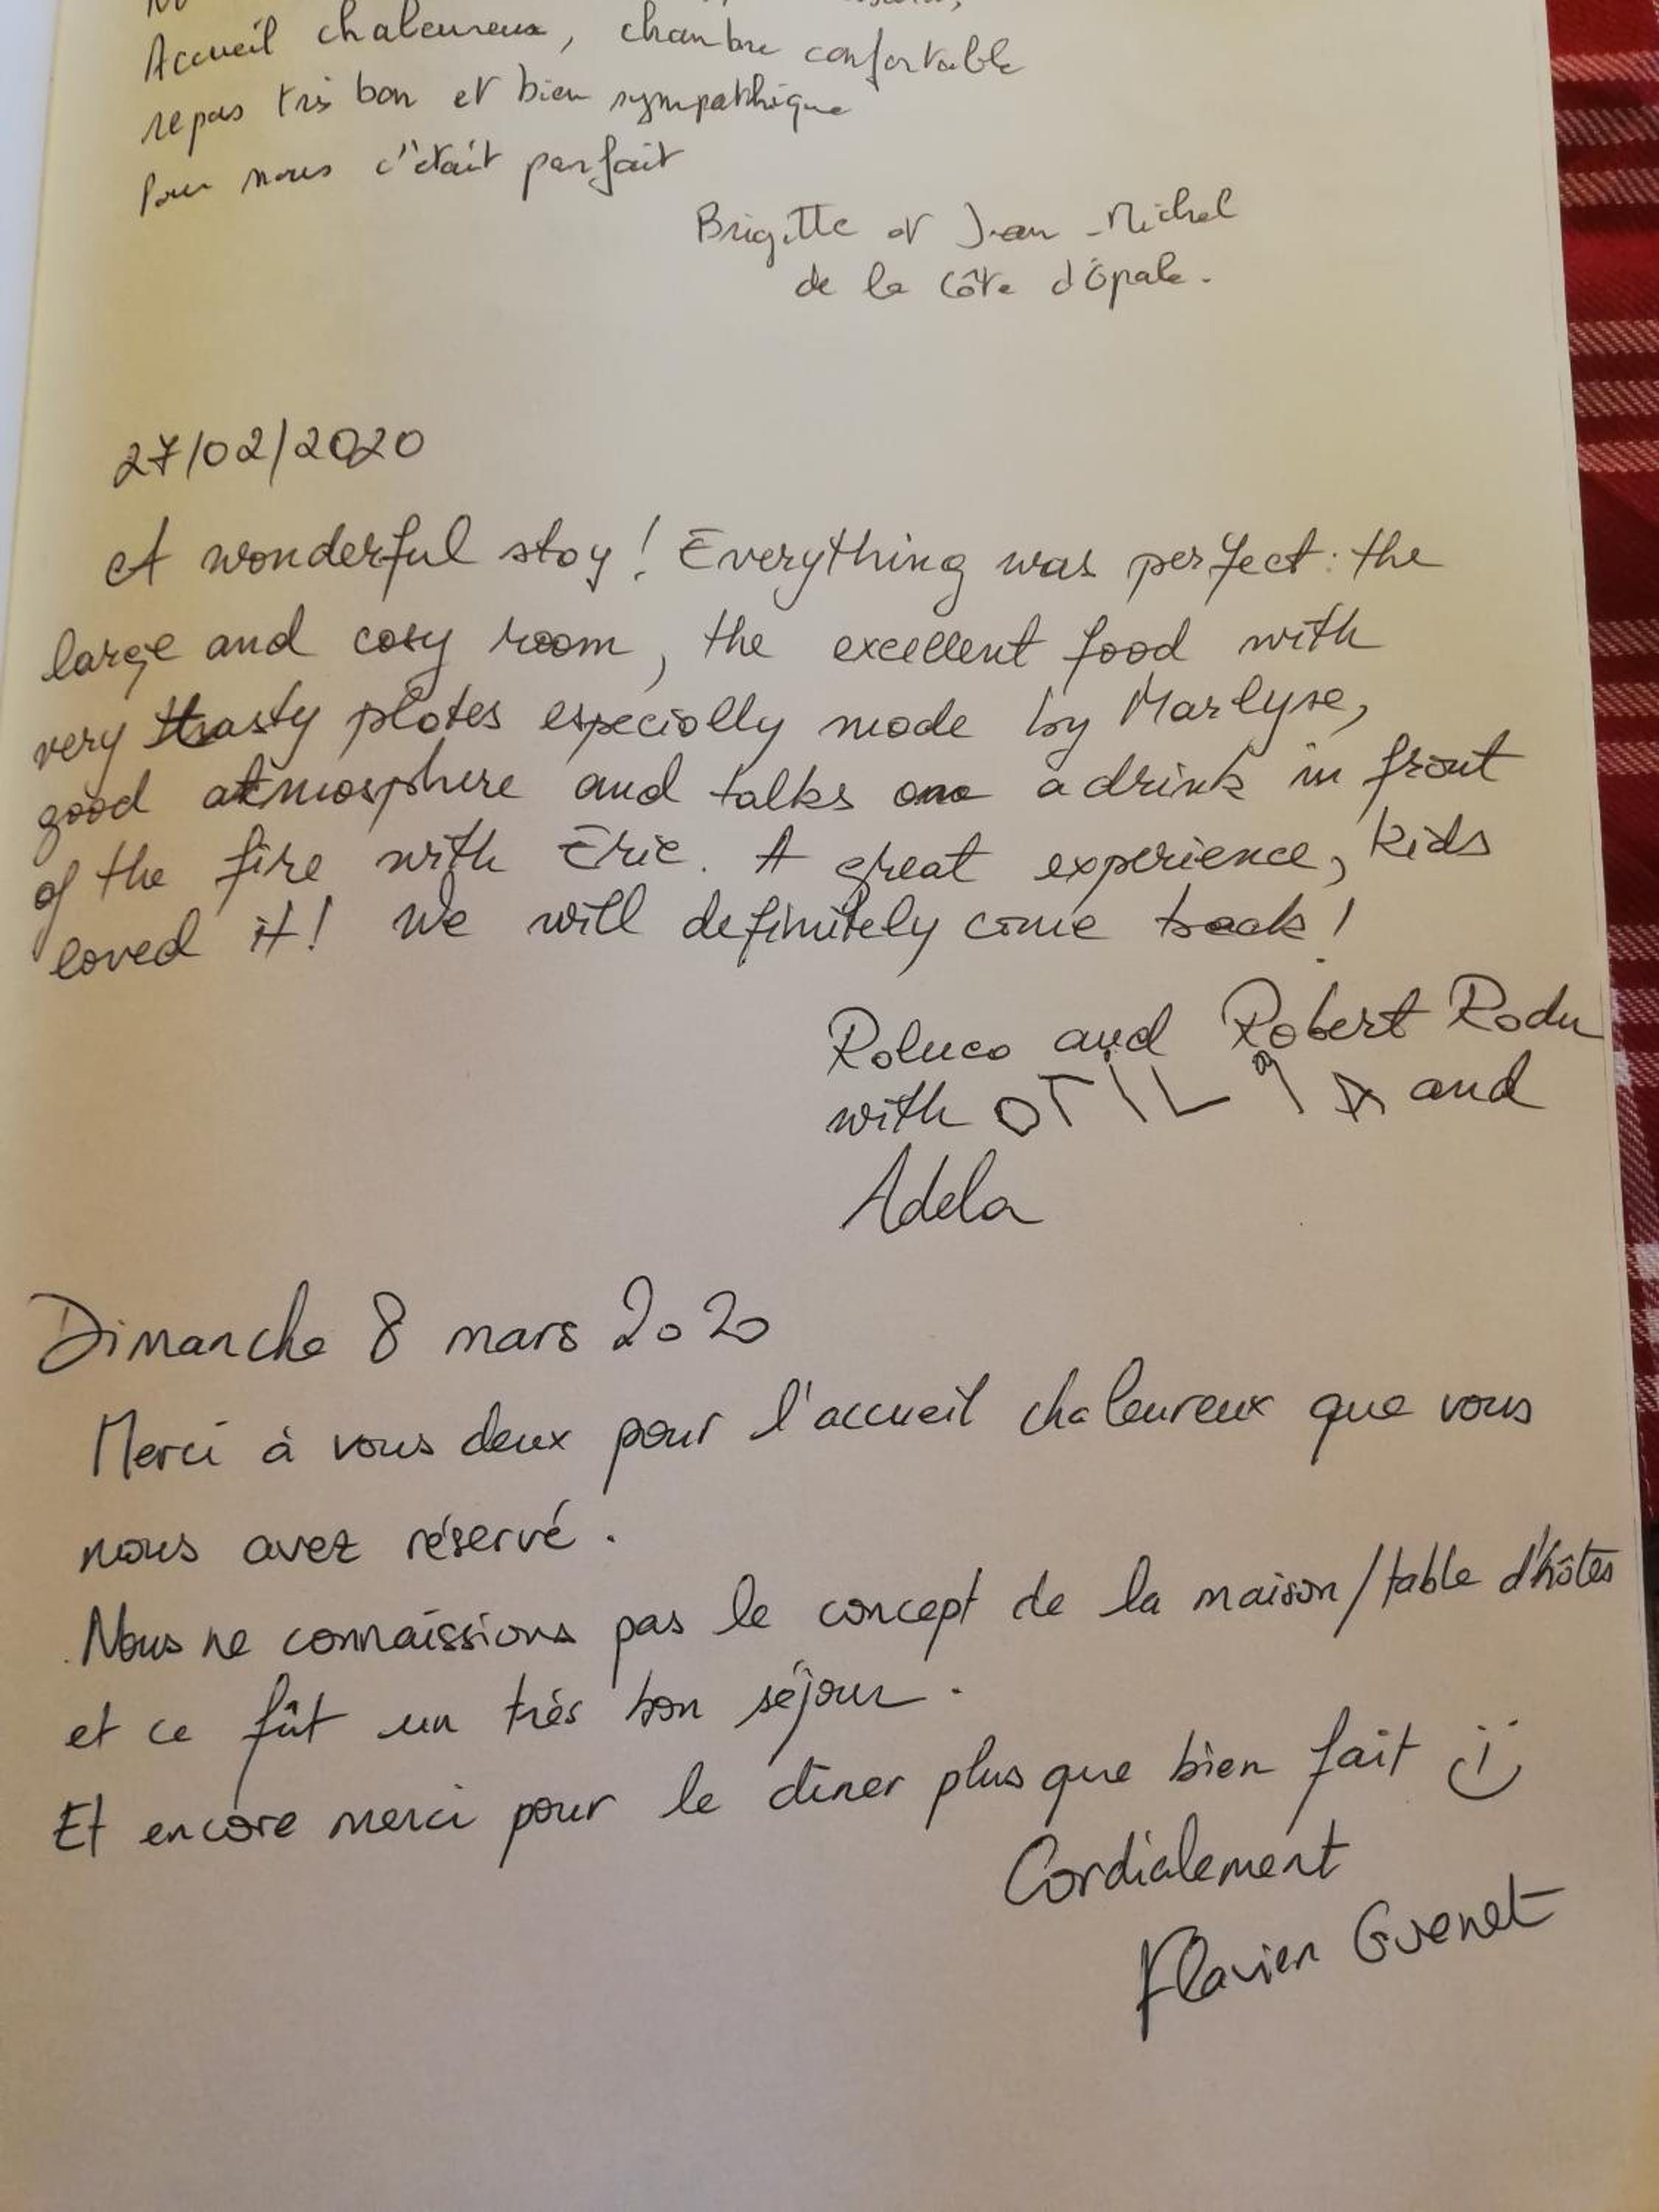 Accueil chaleureux, chambre confortable
repas très bon et bien sympathique
Pour nous c'était parfait
Brigitte et Jean-Michel
de la Côte d'Opale.
27/02/2020
A wonderful stay! Everything was perfect: the
large and cosy room, the excellent food with
very tasty plates especially made by Marlyse,
good atmosphere and talks on a drink in front
of the fire with Eric. A great experience, kids
loved it! We will definitely come back!
Raluca and Robert Radu
with OTILIA and
Adela
Dimanche 8 mars 2020
Merci à vous deux pour l'accueil chaleureux que vous
nous avez réservé.
Nous ne connaissions pas le concept de la maison/table d'hôtes
et ce fût un très bon séjour.
Et encore merci pour le dîner plus que bien fait :)
Cordialement
Flavien Guenet